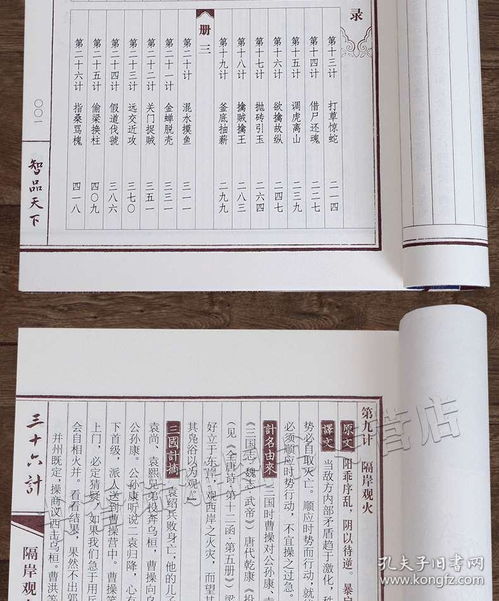 录
第十三计 打草惊蛇 二一四
第十四计 借尸还魂 二二七
第十五计 调虎离山 二三九
第十六计 欲擒故纵 二五一
第十七计 抛砖引玉 二六四
第十八计 擒贼擒王
第十九计 釜底抽薪 二九九
册三
第二十计 混水摸鱼 三一一
第二十一计 金蝉脱壳 三三一
第二十二计 关门捉贼 三五一
第二十三计 远交近攻 三七〇
第二十四计 假道伐虢 三八六
第二十五计 偷梁换柱 四〇九
第二十六计 指桑骂槐 四一八
〇〇一
智品天下
第九计 隔岸观火
原文 阳乖序乱，阴以待逆。暴戾
译文 当敌方内部矛盾趋于激化，
势必自取灭亡。顺应时势而行动，就
必须顺应时势行动，不宜操之过急。
計名由來 三国时曹操对公孙康
《三国志·魏志·武帝》 唐代乾康
（见《全唐诗·第十二函·第五册》）
好立于东岸，观西岸之火灾，而莫
其凫浴以为观
三國計摘 袁绍兵败身亡，他的儿子
袁尚、袁熙兄弟投奔乌桓，曹操向乌
公孙康。公孙康听说二袁归降，心有
下首级，派人送到曹操营中。曹操笑
上门，必定猜疑，如果我们急于用兵
会自相火并。看看结果，果然不出郭
并州既定，操商议西击乌桓。曹洪等
三十六計
隔岸观火
孔夫子旧书网
www.kongfz.com